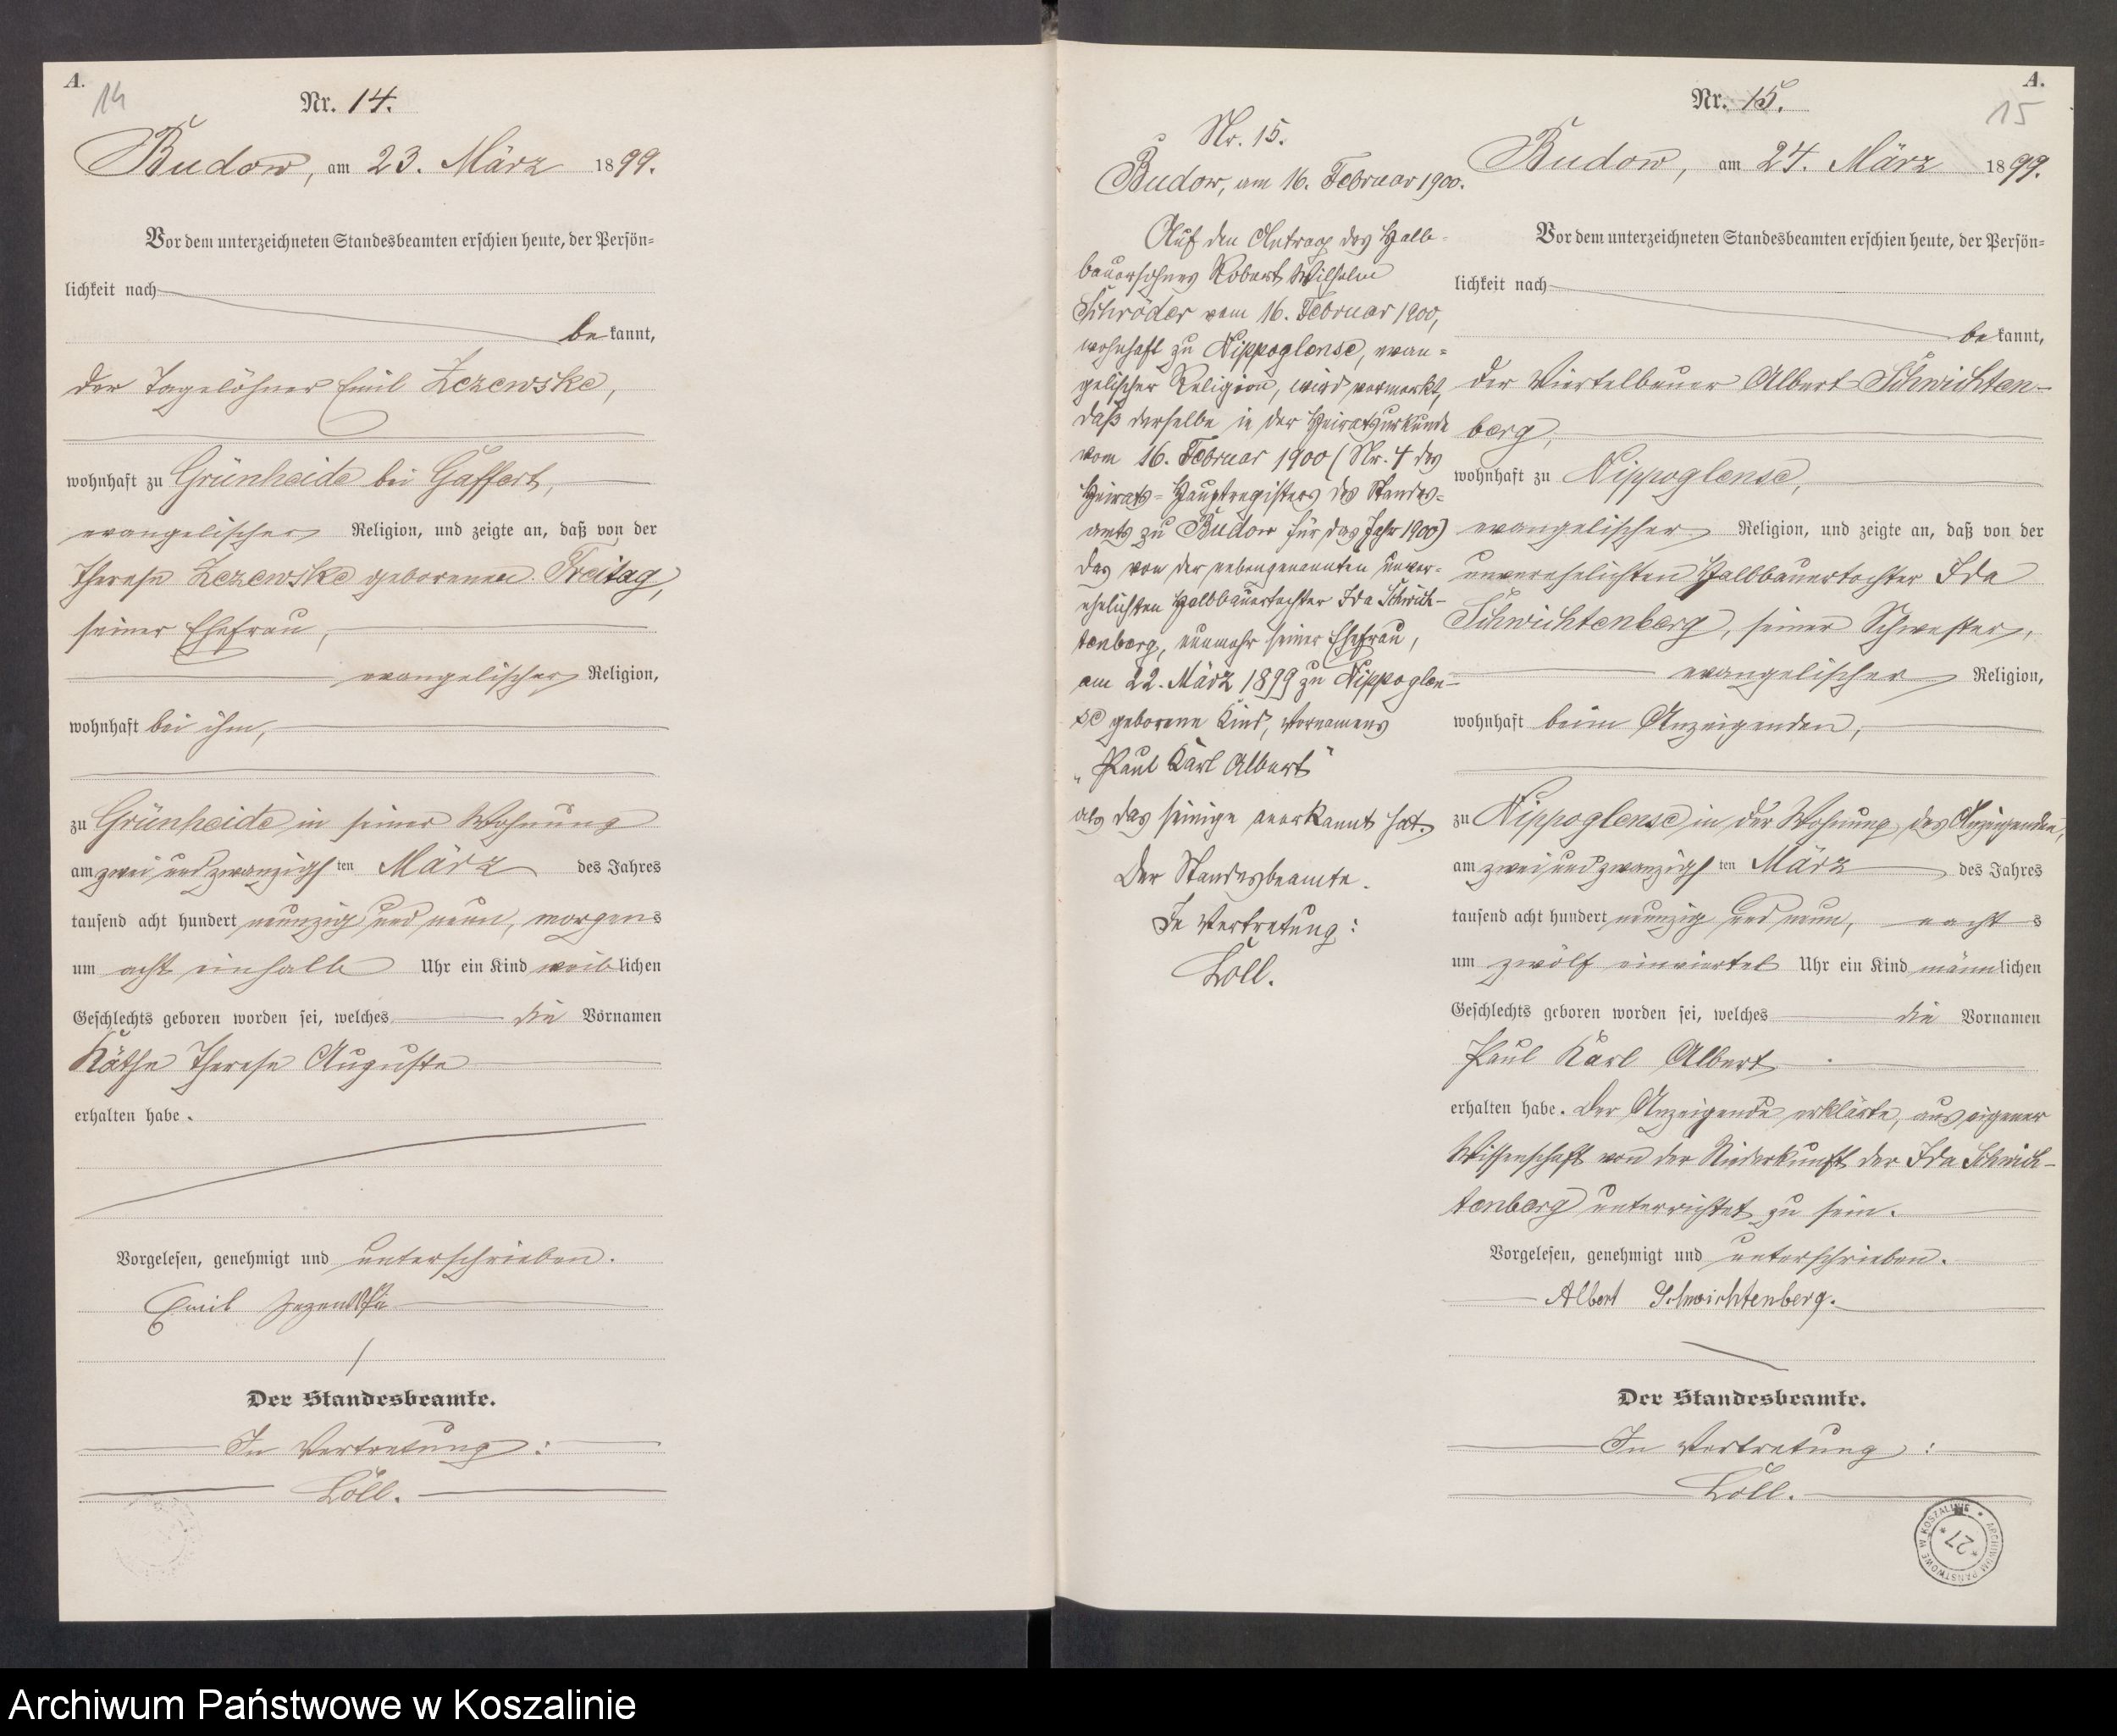 A.
14
Nr. 14.
Budow, am 23. März 1899.
Vor dem unterzeichneten Standesbeamten erschien heute, der Persön=
lichkeit nach
be kannt,
der Tagelöhner Emil Zezewske,
wohnhaft zu Grünheide bei Gaffert,
evangelischer Religion, und zeigte an, daß von der
Therese Zezewske geborenen Freitag,
seiner Ehefrau,
evangelischer Religion,
wohnhaft bei ihm,
zu Grünheide in seiner Wohnung
am zwei und zwanzigsten März des Jahres
tausend acht hundert neunzig und neun, morgens
um acht einhalb Uhr ein Kind weiblichen
Geschlechts geboren worden sei, welches die Vornamen
Käthe Therese Auguste
erhalten habe.
Vorgelesen, genehmigt und unterschrieben.
Emil
Der Standesbeamte.
In Vertretung:
Löll.
Nr. 15.
Budow, am 16. Februar 1900.
Auf den Antrag des Halb-
bauersohnes Robert Wilhelm
Schröder vom 16. Februar 1900,
wohnhaft zu Nippoglense, evan=
gelischer Religion, wird vermerkt,
daß derselbe in der Heiratsurkunde
vom 16. Februar 1900 (Nr. 4 des
Heirats=Hauptregisters des Standes=
amts zu Budow für das Jahr 1900)
das von der nebengenannten unver-
ehelichten Halbbauertochter Ida Schwich-
tenberg, nunmehr seiner Ehefrau,
am 22. März 1899 zu Nippoglen-
se geborene Kind, Vornamens
„Paul Karl Albert"
als das seinige anerkannt hat.
Der Standesbeamte.
In Vertretung:
Löll.
A.
15
Nr. 15.
Budow, am 24. März 1899.
Vor dem unterzeichneten Standesbeamten erschien heute, der Persön=
lichkeit nach
be kannt,
der Viertelbauer Albert Schwichten-
berg,
wohnhaft zu Nippoglense,
evangelischer Religion, und zeigte an, daß von der
unverehelichten Halbbauertochter Ida
Schwichtenberg, seiner Schwester,
evangelischer Religion,
wohnhaft beim Anzeigenden,
zu Nippoglense in der Wohnung des Anzeigenden,
am zwei und zwanzigsten März des Jahres
tausend acht hundert neunzig und neun, nachts
um zwölf einviertel Uhr ein Kind männlichen
Geschlechts geboren worden sei, welches die Vornamen
Paul Karl Albert
erhalten habe. Der Anzeigende erklärte, aus eigener
Wissenschaft von der Niederkunft der Ida Schwich-
tenberg unterrichtet zu sein.
Vorgelesen, genehmigt und unterschrieben.
Albert Schwichtenberg.
Der Standesbeamte.
In Vertretung:
Löll.
ARCHIWUM PAŃSTWOWE W KOSZALINIE
* 27 *
Archiwum Państwowe w Koszalinie